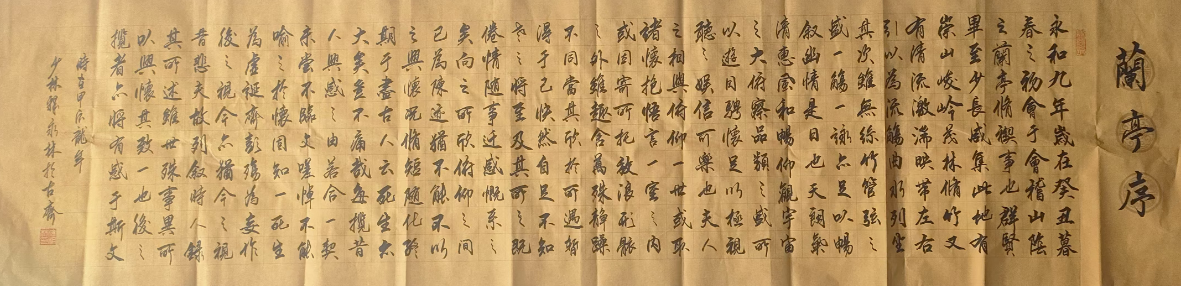 蘭亭序
永和九年歲在癸丑暮
春之初會于會稽山陰
之蘭亭脩禊事也群賢
畢至少長咸集此地有
崇山峻岭茂林脩竹又
有清流激湍映帶左右
引以為流觴曲水列坐
其次雖無絲竹管弦之
盛一觴一詠亦足以暢
叙幽情是日也天朗氣
清惠風和暢仰觀宇宙
之大俯察品類之盛所
以遊目騁懷足以極視
聽之娛信可樂也夫人
之相與俯仰一世或取
諸懷抱悟言一室之內
或因寄所托放浪形骸
之外雖趣舍萬殊靜躁
不同當其欣於所遇暫
得于己快然自足不知
老之將至及其所之既
倦情隨事遷感慨系之
矣向之所欣俯仰之間
已為陳迹猶不能不以
之興懷況脩短隨化終
期于盡古人云死生亦
大矣豈不痛哉每攬昔
人興感之由若合一契
未嘗不臨文嗟悼不能
喻之於懷固知一死生
為虛誕齊彭殤為妄作
後之視今亦猶今之視
昔悲夫故列叙時人錄
其所述雖世殊事異所
以興懷其致一也後之
攬者亦將有感于斯文
時在甲辰龍年
少林永林於古齋